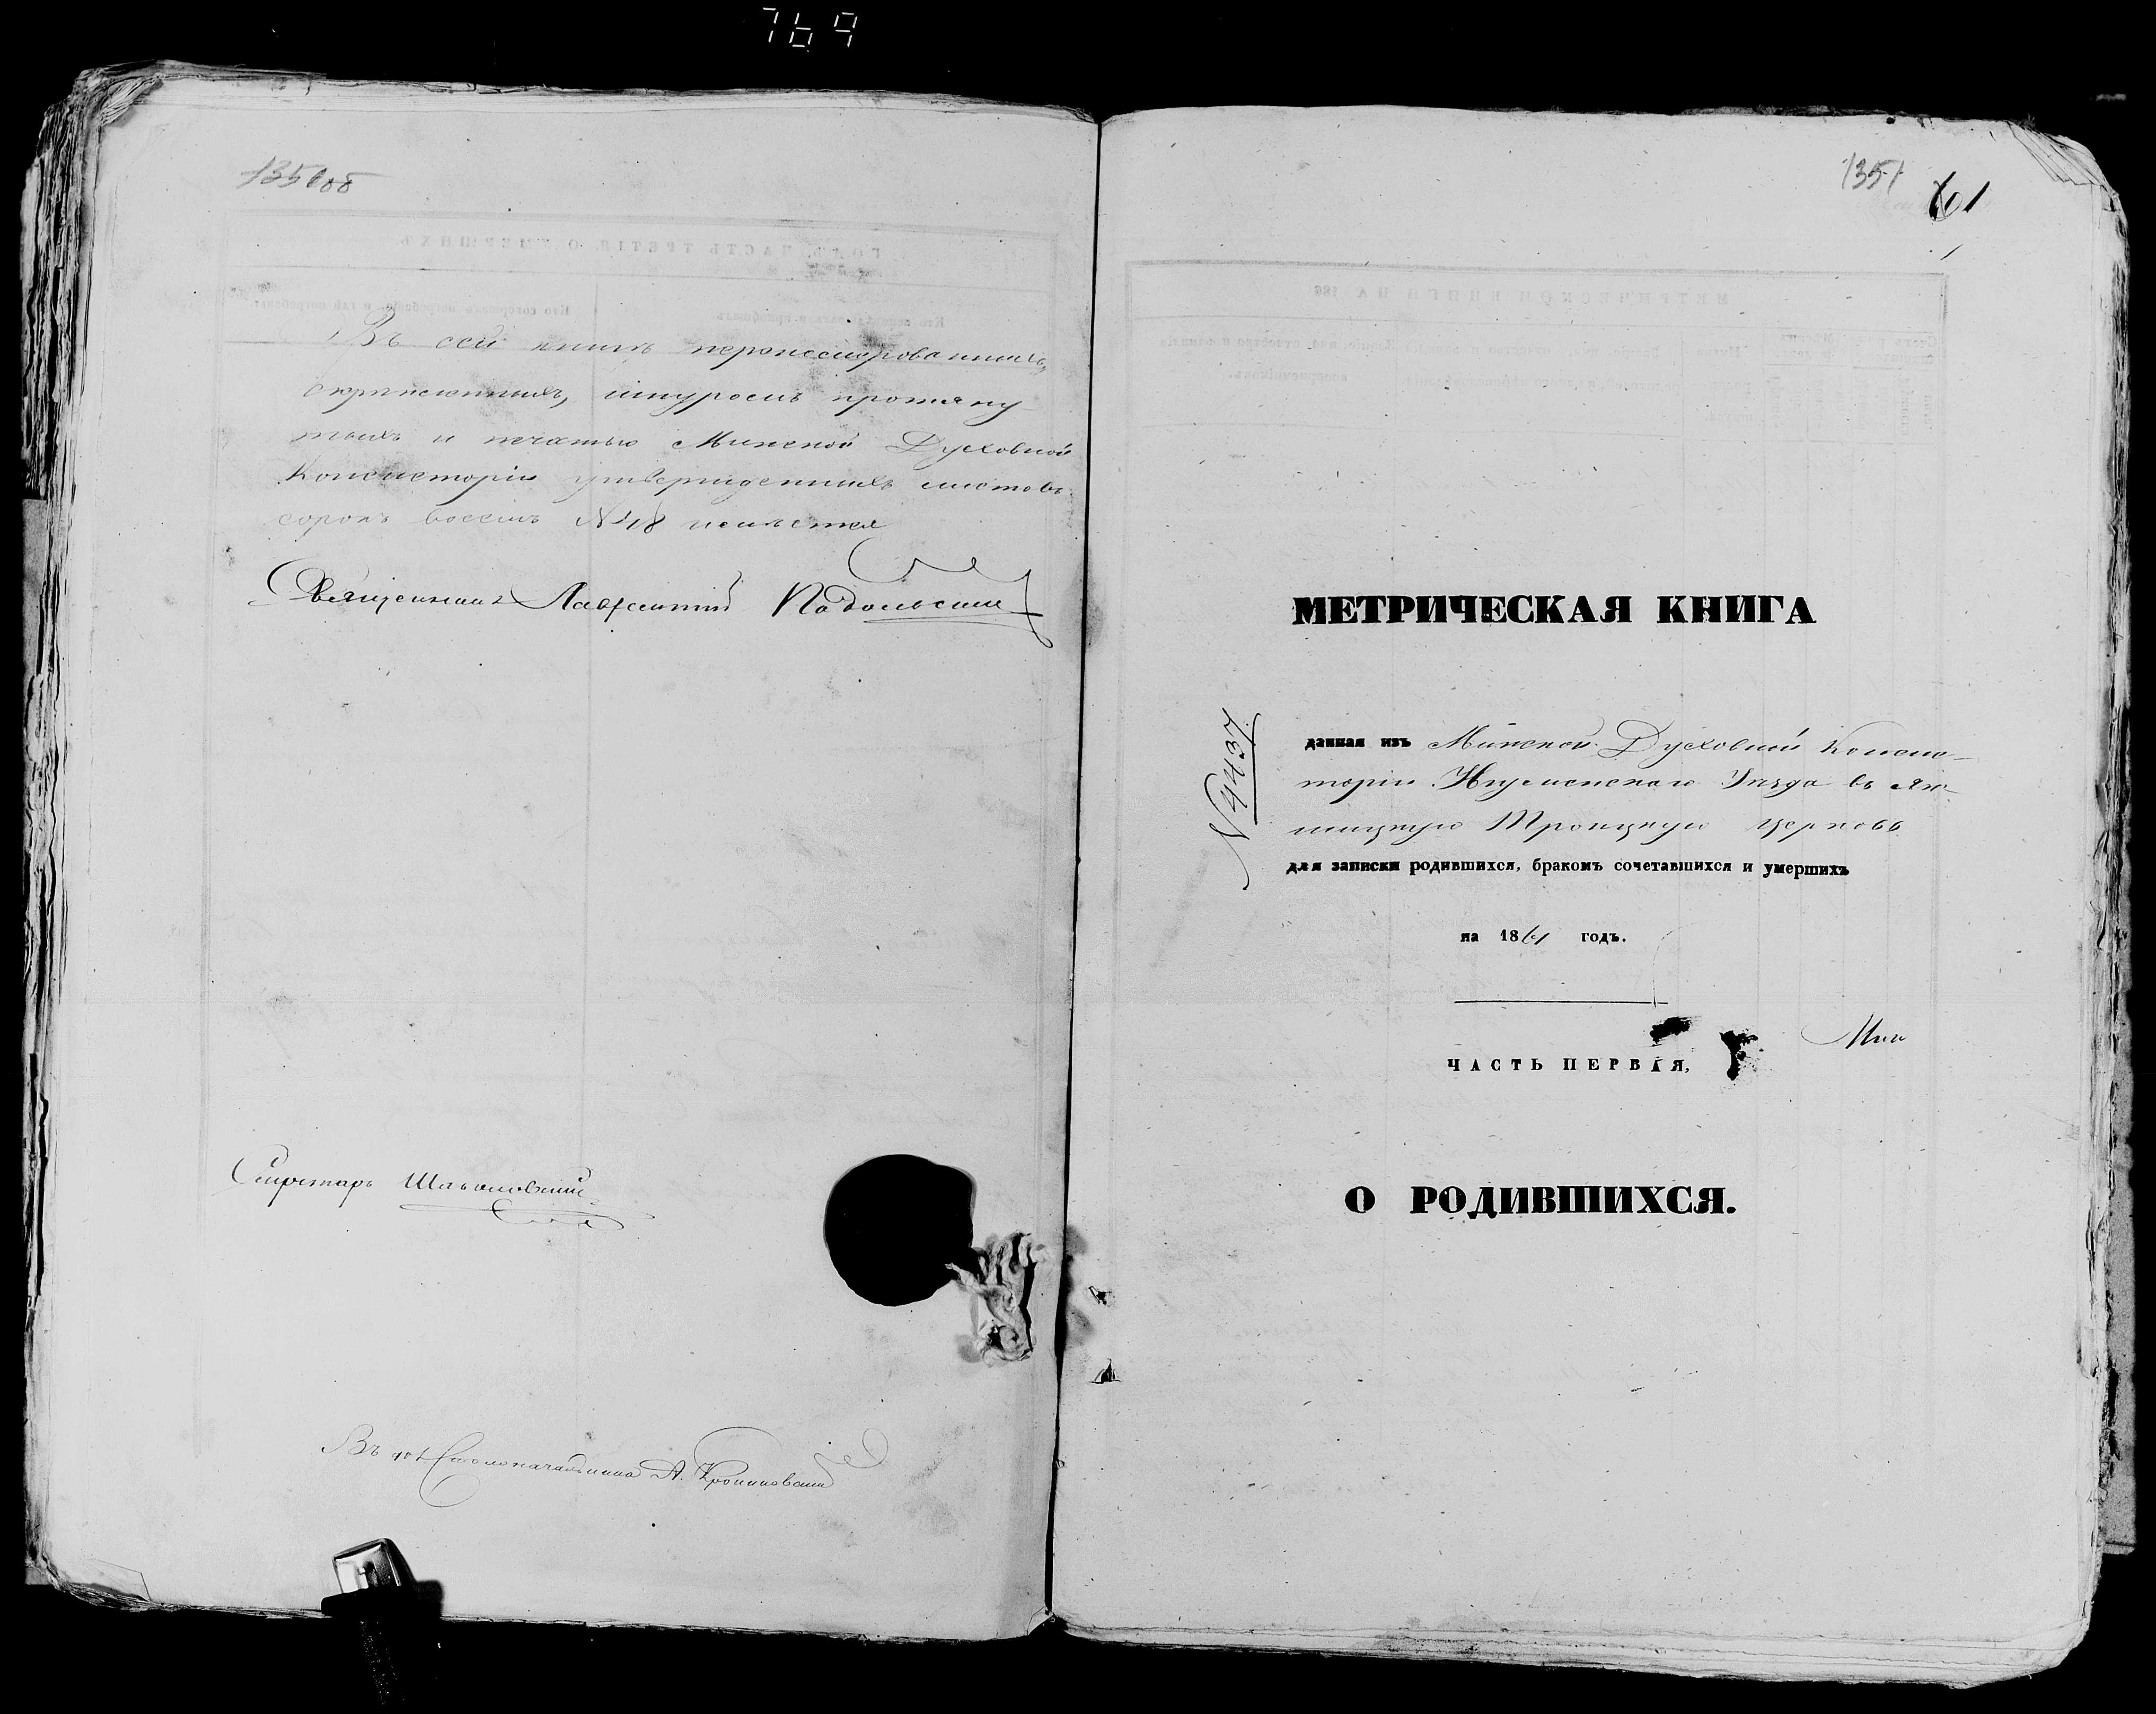 769
Въ сей книгѣ перенумерованныхъ,
скрѣпленныхъ, шнуромъ протяну-
тыхъ и печатью Минской Духовной
Консисторіи утвержденныхъ листовъ
сорокъ восемь №48 имѣется
Священникъ Лаврентій Подольскій
Секретарь
Въ Столоначальника А.
1351
61
МЕТРИЧЕСКАЯ КНИГА
N 4437
данная изъ Минской Духовной Консис-
торіи Игуменскаго Уѣзда въ Як-
шицкую Троицкую церковь
для записки родившихся, бракомъ сочетавшихся и умершихъ
на 1861 годъ.
ЧАСТЬ ПЕРВАЯ,
Мин
О РОДИВШИХСЯ.